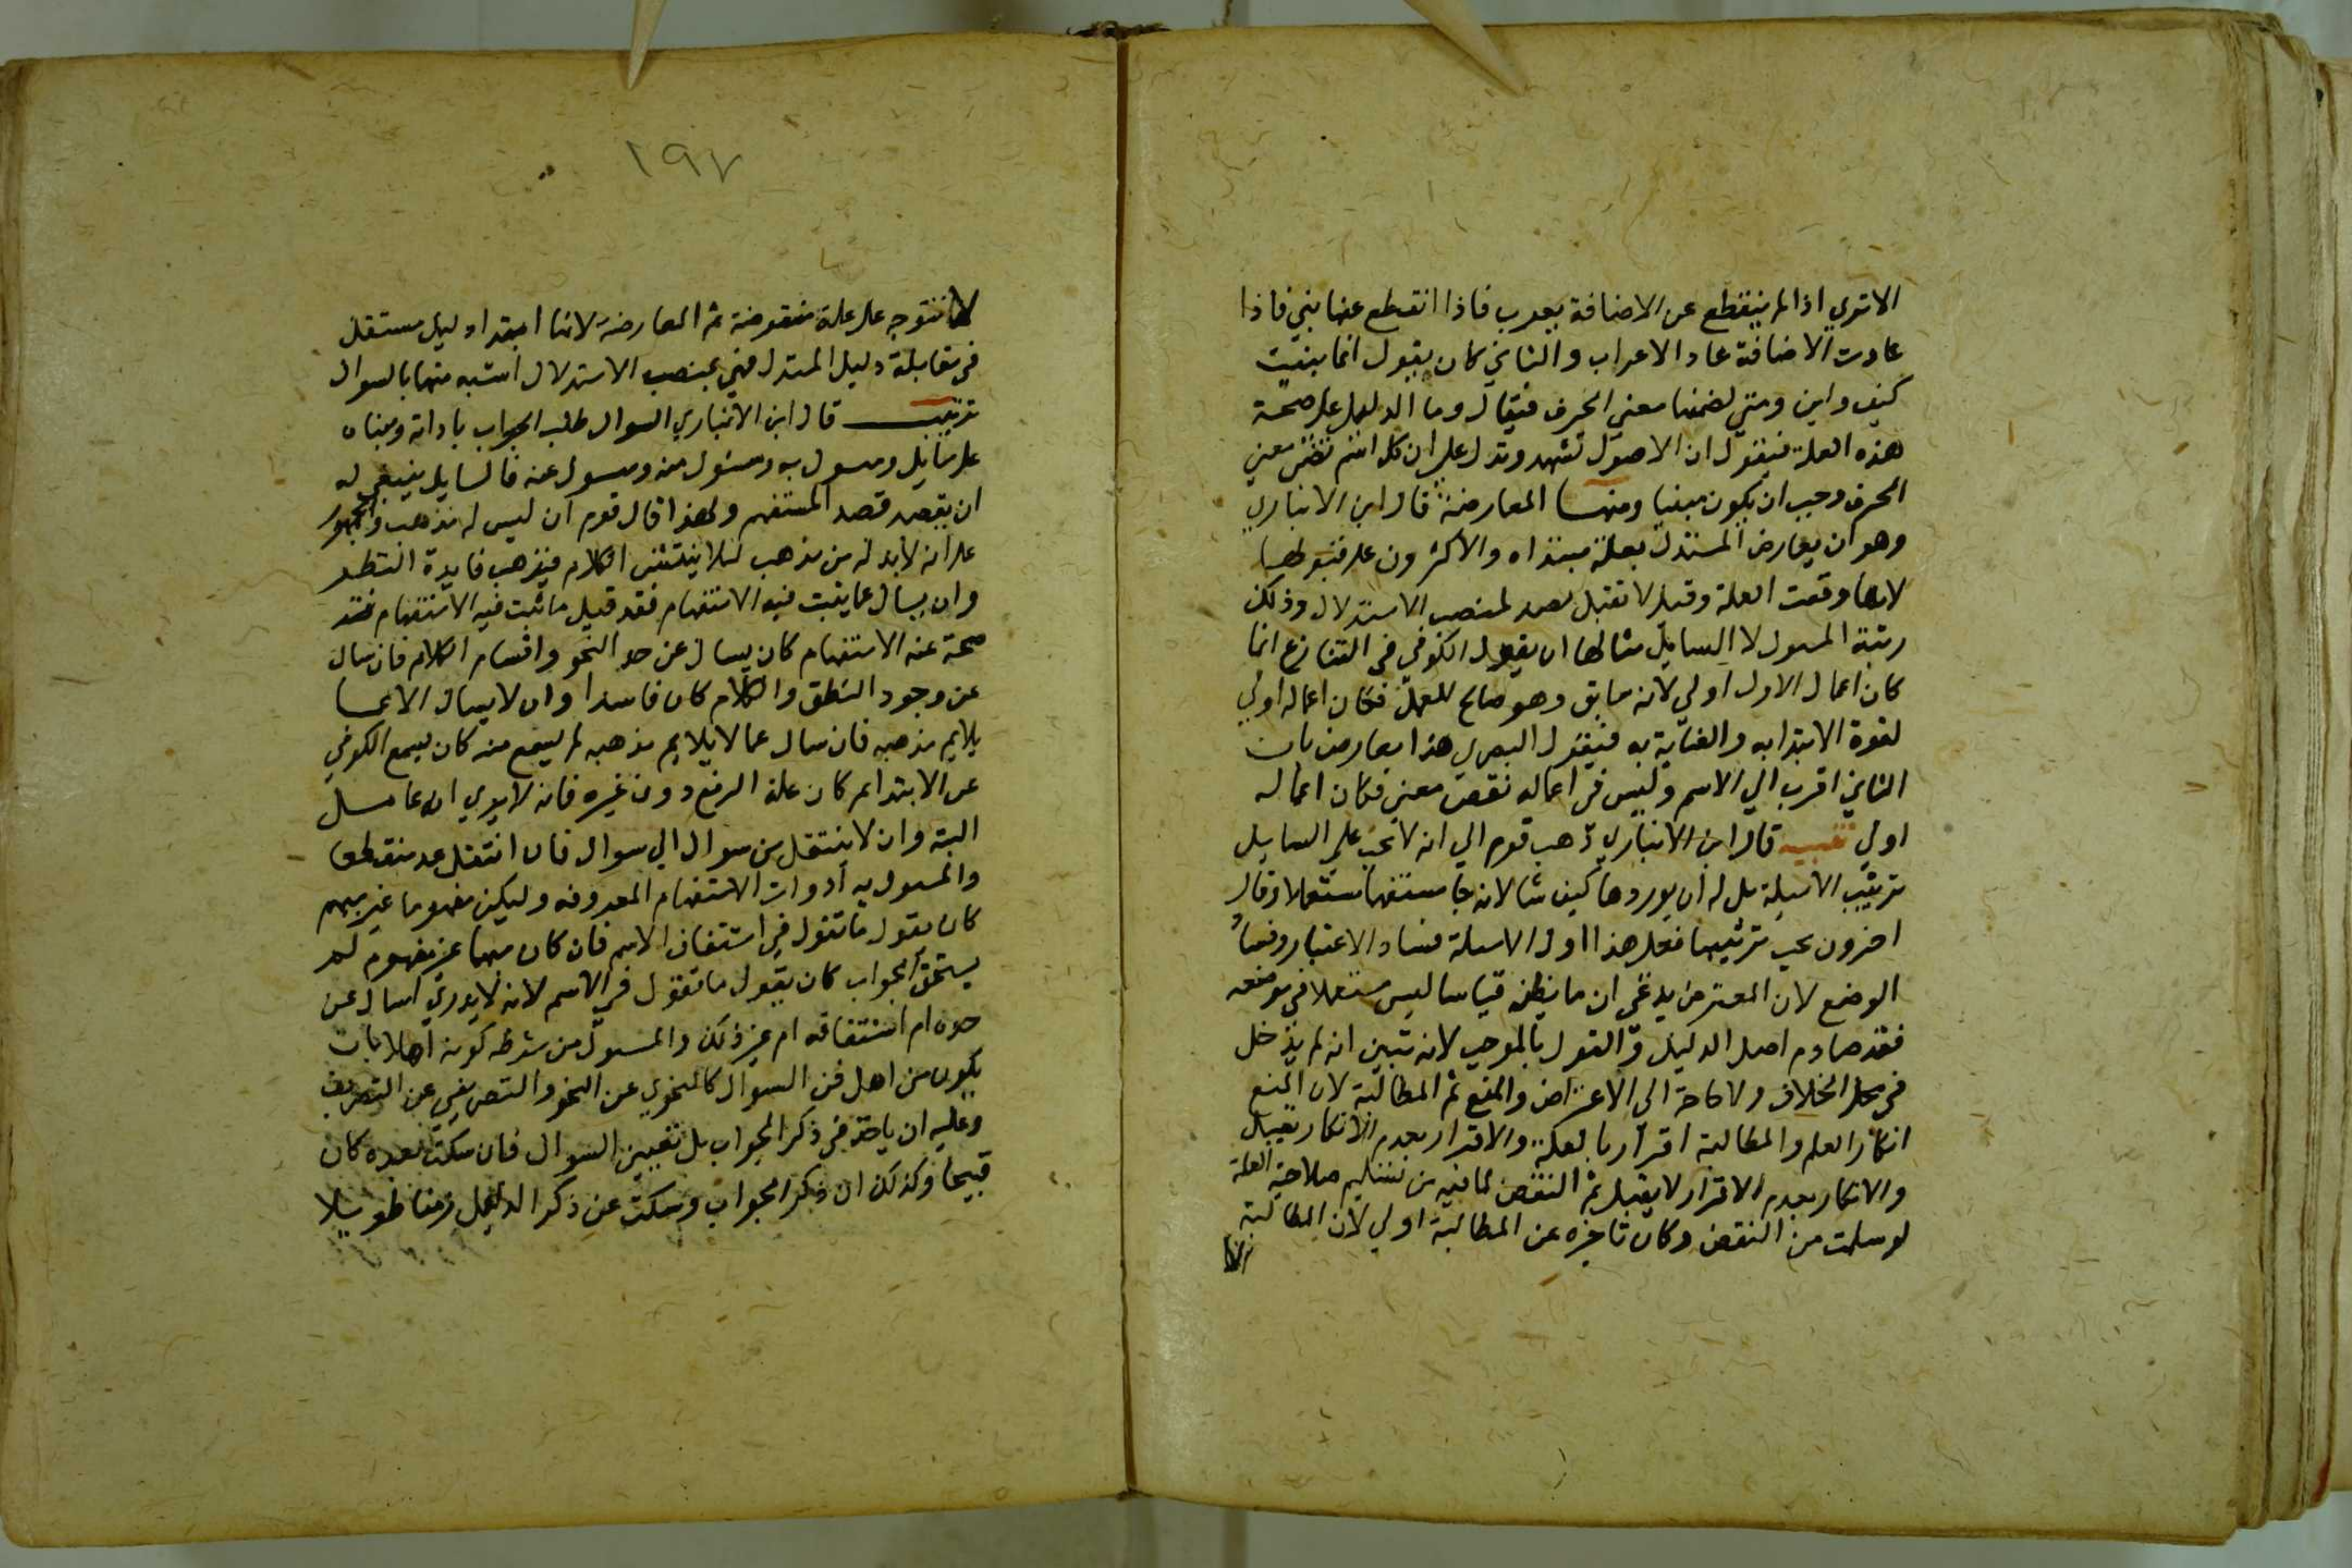 الاتري اذا لم ينقطع عن الاضافة يعرب فاذا انقطع عنها بني فاذا
عادت الاضافة عاد الاعراب والثاني كان يقول انما بنيت
كيف واين ومتي لتضمنها معني الحرف فيقال وما الدليل علي صحة
هذه العلة فيقول ان الاصول تشهد وتدل علي ان كل اسم تضمن معني
الحرف وجب ان يكون مبنيا ومنها المعارضة قال ابن الانباري
وهو ان يعارض المستدل بعلة مبتداه والاكثرون علي قبولها
لانها دفعت العلة وقيل لا تقبل تصد لمنصب الاستدلال وذلك
رتبة المسول لا السايل مثالها ان يقول الكوفي في التنازع انما
كان اعمال الاول اولي لانه سابق وهو صالح للعمل فكان اعماله اولي
لقوة الابتدا به والعناية به فيقول البصري هذا معارض بان
الثاني اقرب الي الاسم وليس في اعماله نقض معني فكان اعماله
اولي تنبيه قال ابن الانباري ذهب قوم الي انه لا يجب علي السايل
ترتيب الاسيلة بل له ان يوردها كيف شا لانه جا مستفهما مستعلما وقال
اخرون يجب ترتيبها فعلي هذا اول الاسلة فساد الاعتبار وفساد
الوضع لان المعترض يدعي ان ما يظنه قياسا ليس مستعملا في موضعه
فقد صادم اصل الدليل و القول بالموجب لانه تبين انه لم يدخل
في محل الخلاف ولا حاجة الي الاعتراض والمنع ثم المطالبة لان المنع
انكار العلم والمطالبة اقرار بالعكة والاقرار بعدم الانكار يقبل
والانكار بعدم الاقرار لا يقبل ثم النقض لما فيه من تسليم صلاحية العلة
لو سلمت من النقض وكان تاخره عن المطالبة اولي لان المطالبة
لانا
١٩٧
لا تتوجه علي علة منقوضة ثم المعارضة لانها ابتدا دليل مستقل
في مقابلة دليل المستدل فهي بمنصب الاستدلال اشبه منها بالسوال
ترتيب قال ابن الانباري السوال طلب الجواب باداته ومبناه
علي سايل ومسول به ومسول منه ومسول عنه فالسايل ينبغي له
ان يقصد قصد المستفهم ولهذا قال قوم ان ليس له مذهب والجمهور
علي انه لا بد له من مذهب ليلا ينتشر الكلام فيذهب فايدة النظر
وان يسال عما يثبت فيه الاستفهام فقد قيل ما ثبت فيه الاستفهام
صحة عنه الاستفهام كان يسال عن حد النحو واقسام الكلام فان سال
عن وجود النطق والكلام كان فاسدا وان لا يسال الا عما
يلايم مذهبه فان سال عما لا يلايم مذهبه لم يسمع منه كان يسمع الكوفي
عن الابتدا لم كان علة الرفع دون غيره فانه لا يري انه عامل
البتة وان لا ينتقل من سوال الي سوال فان انتقل عد منقطعا
والمسول به ادوات الاستفهام المعروفه وليكن مفهوما غير مبهم
كان يقول ما تقول في اشتقاق الاسم فان كان مبهما غير مفهوم لم
يستحق الجواب كان يقول ما تقول في الاسم لانه لا يدري اسال عن
حده ام اشتقاقه ام غير ذلك والمسول من شرطه كونه اهلا بان
يكون من اهل فن السوال كالنحوي عن النحو والتصريفي عن التصريف
وعليه ان ياخذ في ذكر الجواب بل تعيين السوال فان سكت بعده كان
قبيحا وكذلك ان ذكر الجواب وسكت عن ذكر الدليل زمنا طويلا